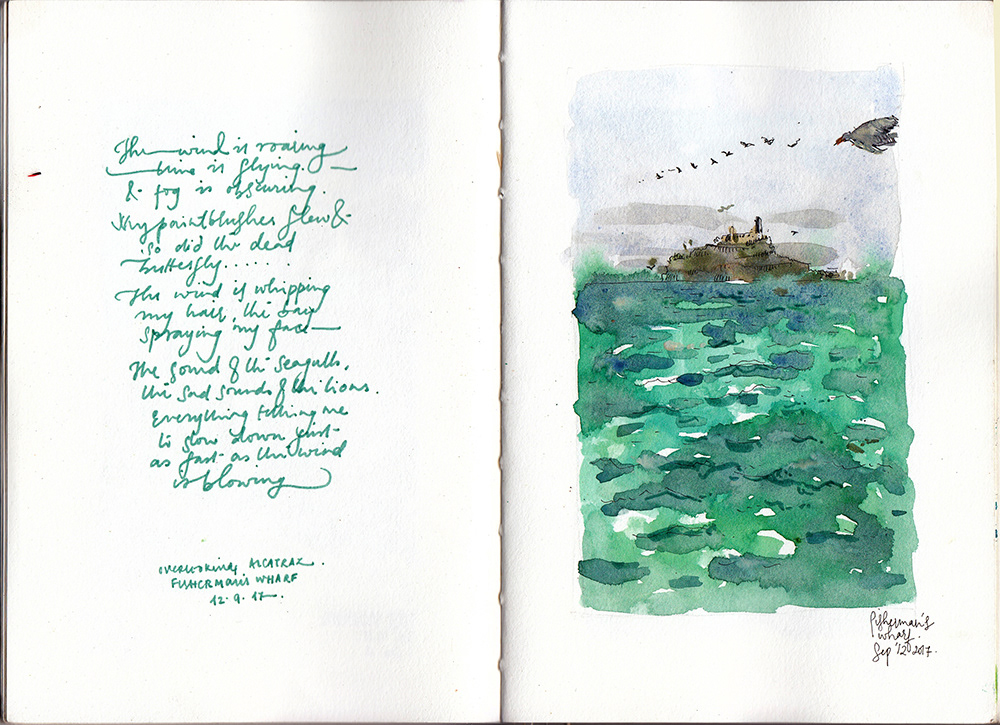 The wind is roaring
time is flying.
& fog is obscuring.
My paintbrushes flew &
so did the dead
butterfly......
The wind is whipping
my hair, the bay
spraying my face—
The sound of the seagulls,
the sad sounds of the lions.
Everything telling me
to slow down just
as fast as the wind
is blowing
OVERLOOKING ALCATRAZ.
FISHERMAN'S WHARF
12.9.17.
Fisherman's
wharf.
Sep '12 2017.